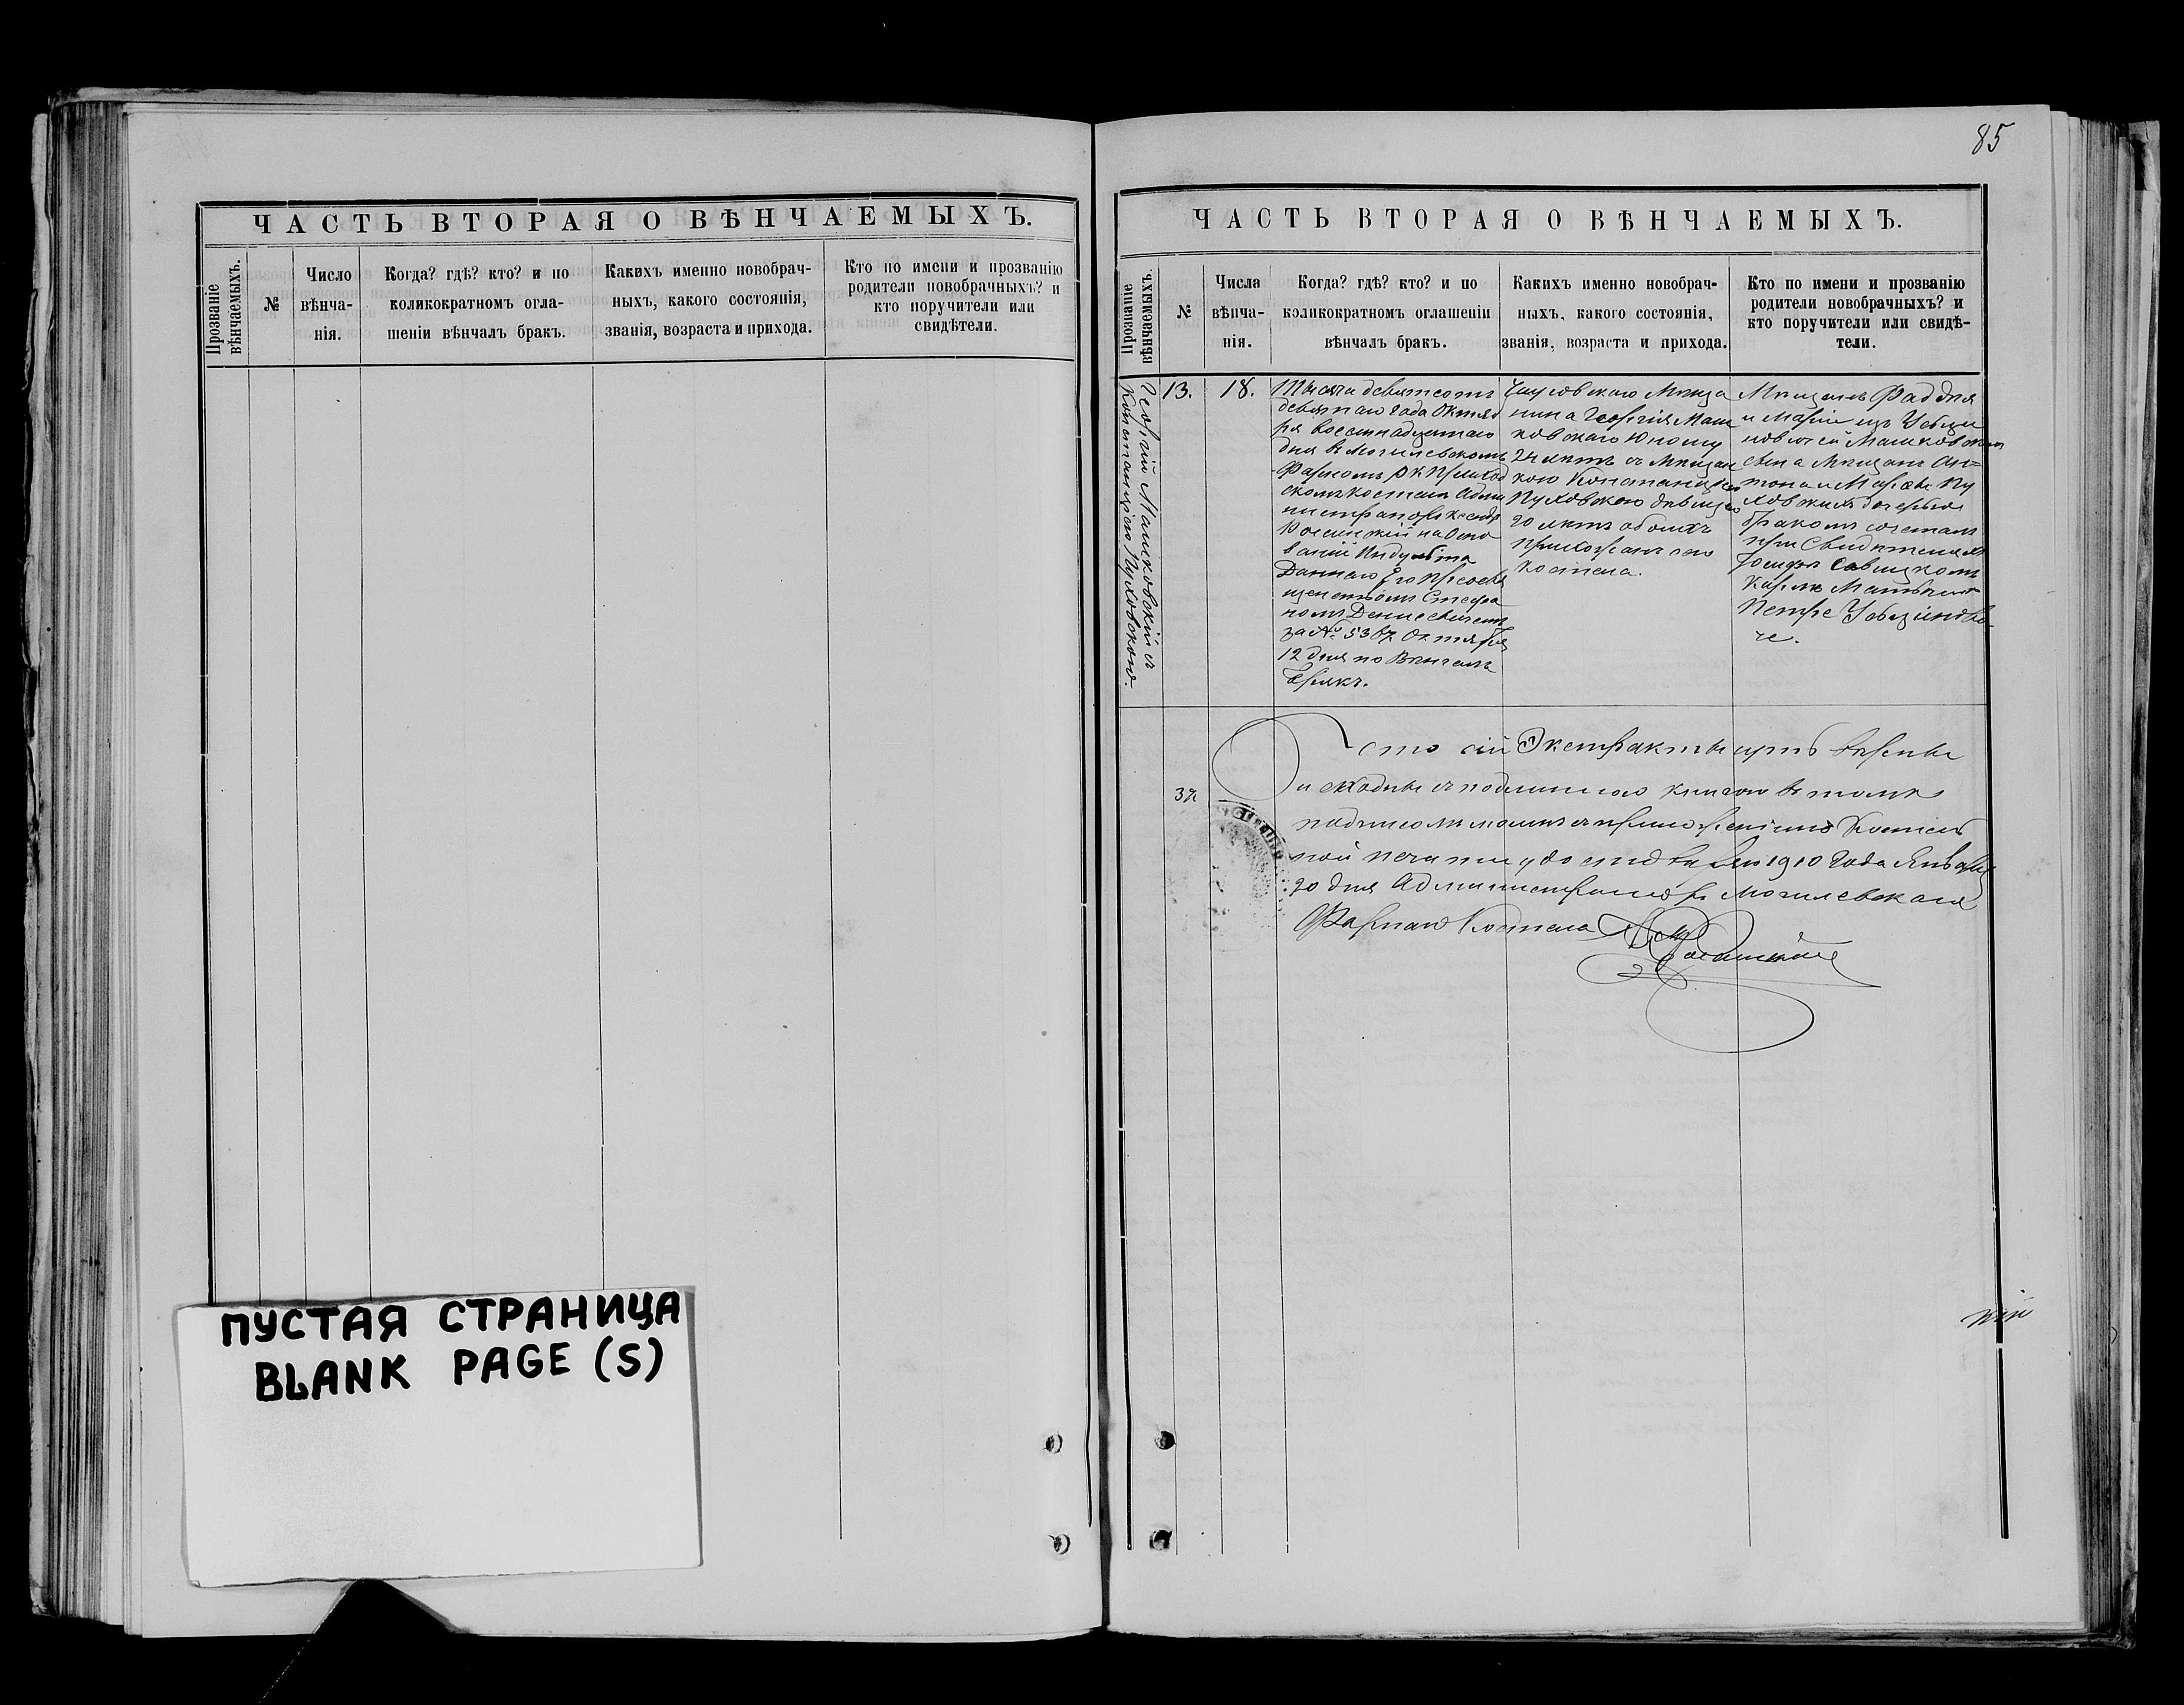 ЧАСТЬ ВТОРАЯ О ВѢНЧАЕМЫХЪ.
Прозваніе
вѣнчаемыхъ.
№
Число
вѣнча-
нія.
Когда? гдѣ? кто? и по
коликократномъ огла-
шеніи вѣнчалъ бракъ.
Какихъ именно новобрач-
ныхъ, какого состоянія,
званія, возраста и прихода.
Кто по имени и прозванію
родители новобрачныхъ? и
кто поручители или
свидѣтели.
ПУСТАЯ СТРАНИЦА
BLANK PAGE (S)
85
ЧАСТЬ ВТОРАЯ О ВѢНЧАЕМЫХЪ.
Прозваніе
вѣнчаемыхъ.
№
Числа
вѣнча-
нія.
Когда? гдѣ? кто? и по
коликократномъ оглашеніи
вѣнчалъ бракъ.
Какихъ именно новобрач-
ныхъ, какого состоянія,
званія, возраста и прихода.
Кто по имени и прозванію
родители новобрачныхъ? и
кто поручители или свидѣ-
тели.
Георгій Машковскій съ
Констанціею Пуховскою.
13.
18.
Тысяча девятсотъ
девятаго года Октяб
ря восемнадцатаго
дня въ Могилевскомъ
Фарномъ РК Приход
скомъ костелѣ Адми
нистраторъ Ксендзъ
на осно
ваніи Индульта
Даннаго Его Преосвя
щенствомъ Стефа
номъ Денисевичемъ
за № 5367 Октября
12 дня по Вѣнчалъ
бракъ.
Мѣща
нина Георгія Маш
ковскаго юношу
24 лѣтъ съ Мѣщан
кою Констанціею
Пуховскою дѣвицею
20 лѣтъ обоихъ
прихожанъ сего
костела.
Мѣщанъ Фаддея
и Маріи изъ
Машковскихъ
сына Мѣщанъ Ан=
тона и Пу
ховскихъ дочерью
бракомъ сочеталъ
при Свидѣтеляхъ
Іосифѣ Савицкомъ
Карлѣ
Петре
че.
Что сій Экстрактъ вѣренъ
и сходенъ съ подлинною книгою въ томъ
подписомъ моимъ съ приложеніемъ Костель
ной печати удостовѣряю 1910 года Января
20 дня Администраторъ Могилевскаго
Фарнаго Костела